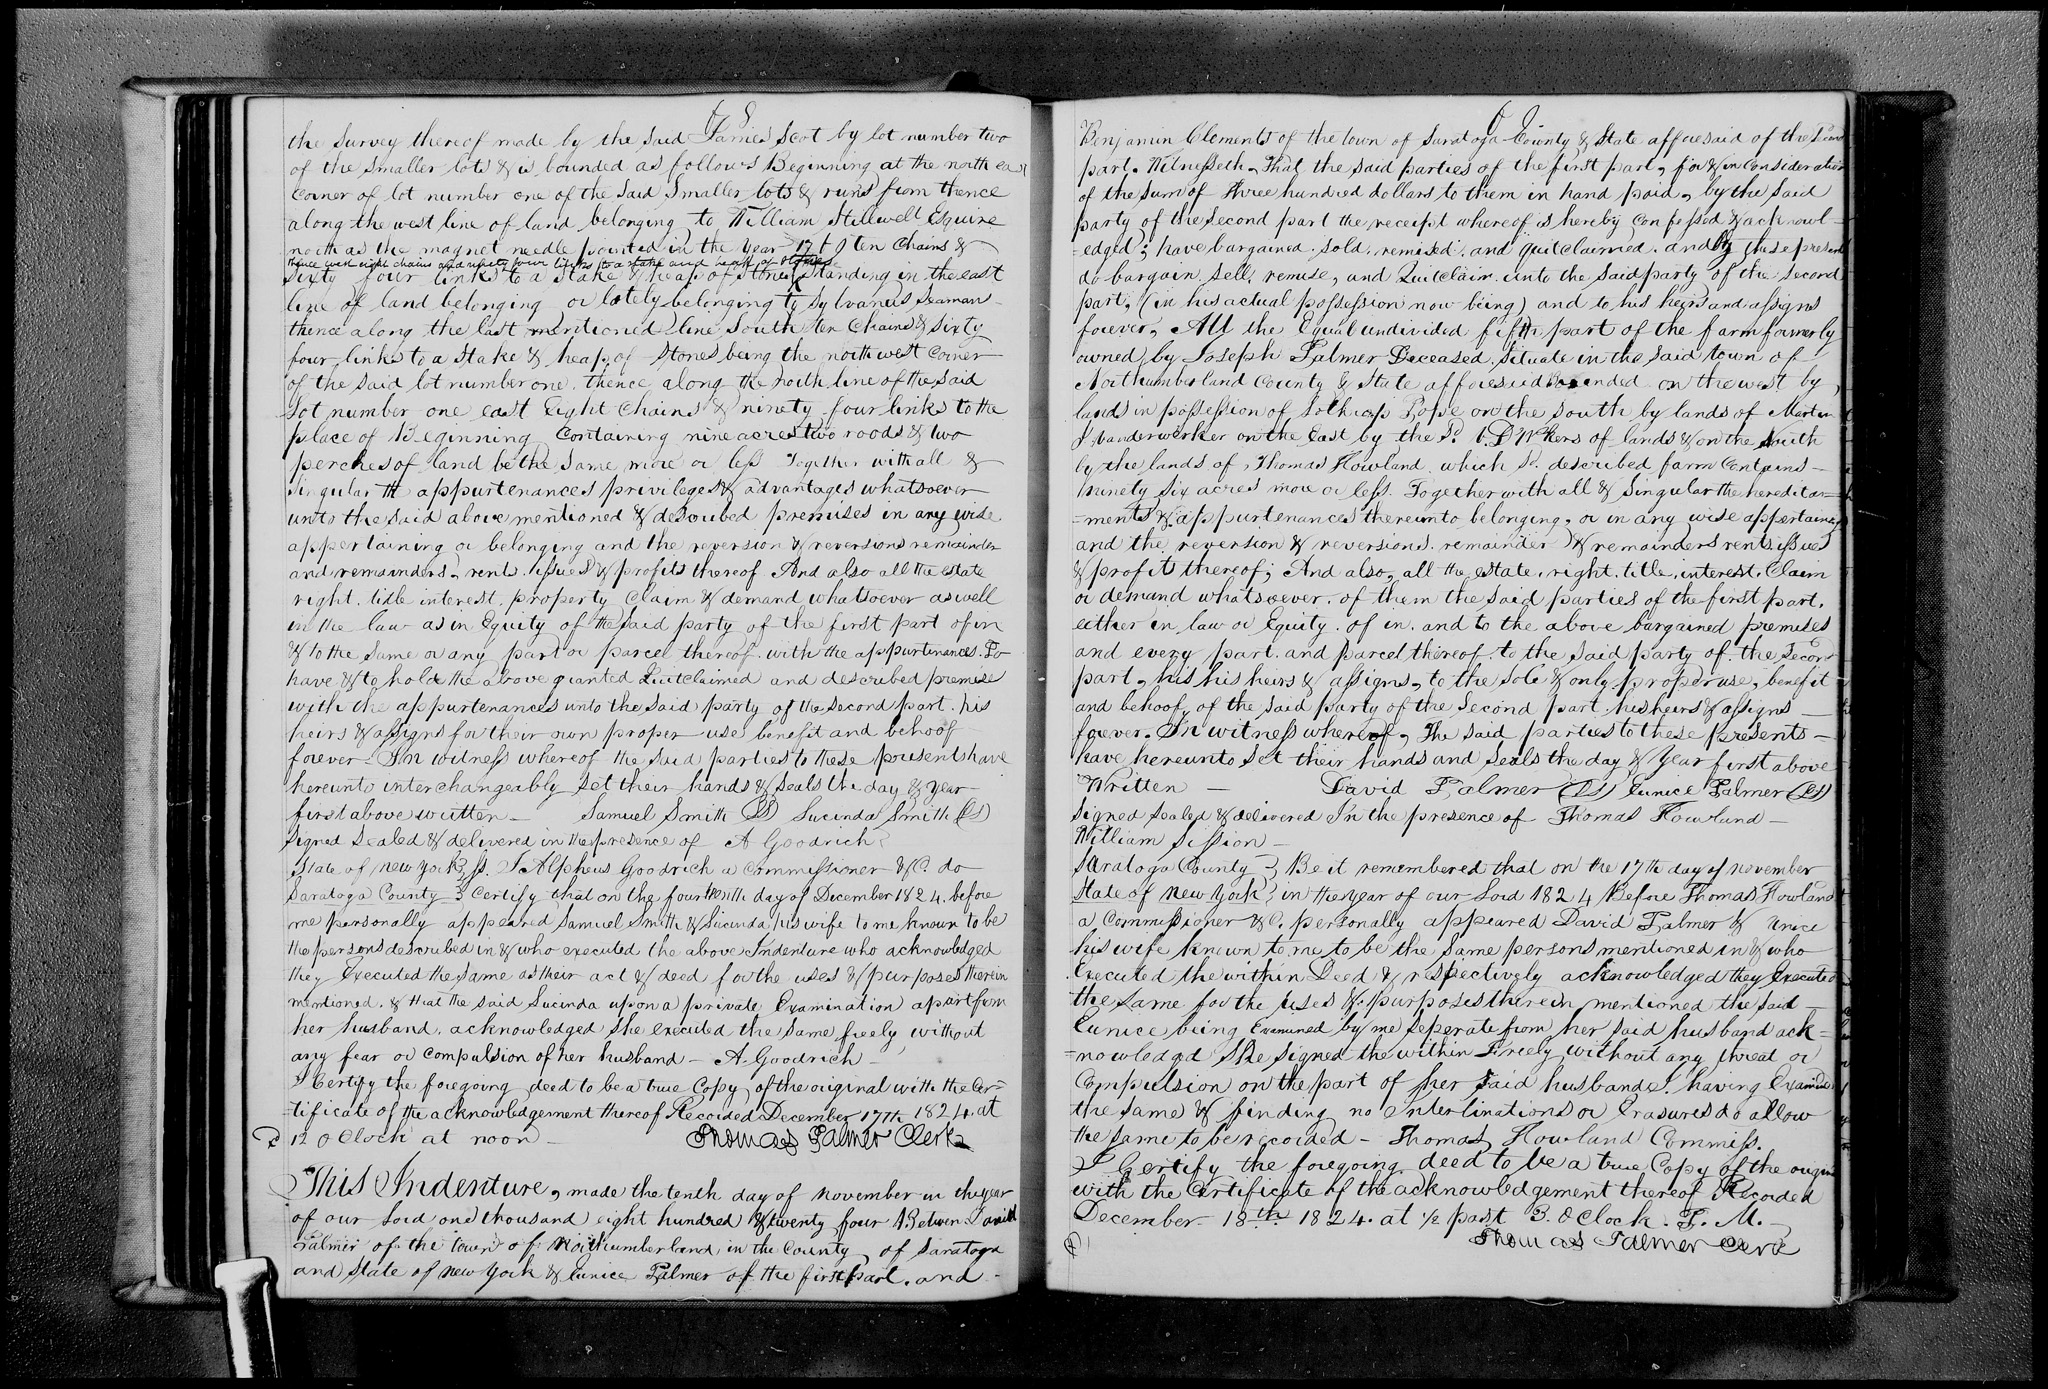 the Survey thereof made by the said James Scot by lot number two
of the smaller lots & is bounded as follows Beginning at the north east
Corner of lot number one of the Said Smaller lots & runs from thence
along the west line of land belonging to William Stillwell Esquire
north as the magnet needle pointed in the Year ten Chains &
thence west eight chains and ninety four links to a stake and heap of stones
Sixty four links to a Stake & heap of Stones Standing in the east
line of land belonging or lately belonging to Sylvanus Seaman
thence along the last mentioned line South ten Chains & Sixty
four links to a Stake & heap of Stones being the north west Corner
of the Said lot number one. thence along the north line of the Said
Lot number one east Eight Chains & ninety four links to the
place of Beginning Containing nine acres two roods & two
perches of land be the Same more or less Together with all &
Singular the appurtenances privileges & advantages whatsoever
unto the Said above mentioned & described premises in any wise
appertaining or belonging and the reversion & reversions remainder
and remainders, rents. issues & profits thereof And also all the estate
right. title interest. property Claim & demand whatsoever as well
in the law as in Equity of the Said party of the first part of in
& to the Same or any part or parcel thereof with the appurtenances. To
have & to hold the above granted Quitclaimed and described premise
with the appurtenances unto the Said party of the Second part. his
heirs & assigns for their own proper use benefit and behoof
forever - In witness whereof the Said parties to these presents have
hereunto interchangeably Set their hands & Seals the day & Year
first above written - Samuel Smith (LS) Lucinda Smith (LS)
Signed Sealed & delivered in the presence of A Goodrich
State of New York } SS. I Alpheus Goodrich a Commissioner &C. do
Saratoga County } Certify that on the fourteenth day of December 1824. before
me personally appeared Samuel Smith & Lucinda his wife to me known to be
the persons described in & who executed the above Indenture who acknowledged
they Executed the Same as their act & deed for the uses & purposes therein
mentioned. & that the Said Lucinda upon a private Examination apart from
her husband. acknowledged She executed the Same freely without
any fear or Compulsion of her husband - A. Goodrich -
I Certify the foregoing deed to be a true Copy of the original with the Cer=
=tificate of the acknowledgement thereof Recorded December 17th 1824. at
12 O Clock at noon - Thomas Palmer Clerk
This Indenture, made the tenth day of November in the year
of our Lord one thousand eight hundred & twenty four Between David
Palmer of the town of Northumberland in the County of Saratoga
and State of New York & Eunice Palmer of the first part. and -
Benjamin Clements of the town of Saratoga County & State afforesaid of the Second
part. Witnesseth, That the said parties of the first part, for & in Consideration
of the Sum of Three hundred dollars to them in hand paid, by the Said
party of the Second part the receipt whereof is hereby Confessed & acknowl=
=edged; have bargained. Sold. remised. and Quitclaimed. and by these presents
do bargain, Sell, remise, and Quitclaim. unto the Said party of the Second
part, (in his actual possession now being) and to his heirs and assigns
forever, All the Equal undivided fifth part of the farm formerly
owned by Joseph Palmer Deceased. Situate in the said town of
Northumberland County & State afforesaid Bounded on the west by
lands in possession of Pope on the South by lands of Martin
Vanderwerker on the East by the of lands & on the North
by the lands of Thomas Howland which Sd. described farm Contains -
Ninety Six acres more or less. Together with all & Singular the heredita=
=ments & appurtenances thereunto belonging, or in any wise appertaining
and the reversion & reversions. remainder & remainders rents. issues
& profits thereof; And also, all the estate. right. title. interest. Claim
or demand whatsoever. of them the Said parties of the first part.
either in law or Equity. of in. and to the above bargained premises
and every part. and parcel thereof. to the Said party of. the Second
part, his his heirs & assigns, to the Sole & only proper use, benefit
and behoof, of the Said party of the Second part. his heirs & assigns
forever. In witness whereof, The Said parties to these presents -
have hereunto Set their hands and Seals the day & Year first above
Written - David Palmer (LS) Eunice Palmer (LS)
Signed Sealed & delivered In the presence of Thomas Howland -
William Sission -
Saratoga County } Be it remembered that on the 17th day of November
State of New York } in the year of our Lord 1824 Before Thomas Howland
a Commissioner &C. personally appeared David Palmer & Unice
his wife known to me to be the Same persons mentioned in & who
Executed the within Deed & respectively acknowledged they Executed
the Same for the uses & purposes therein mentioned the Said -
Eunice being Examined by me Seperate from her Said husband ack=
=nowledgd She Signed the within Freely without any threat or
Compulsion on the part of her Said husband I. having Examined
the Same & finding no Interlinations or Erasures do allow
the Same to be recorded - Thomas Howland Commiss.
I Certify the foregoing deed to be a true Copy of the origin
with the Certificate of the acknowledgement thereof Recorded
December - 18th 1824. at 1/2 past 3. O Clock. P. M. -
Thomas Palmer Clerk